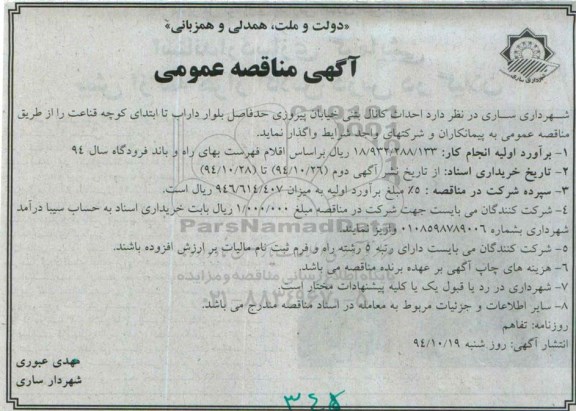 «دولت و ملت، همدلی و همزبانی»
آگهی مناقصه عمومی
شهرداری ساری
شهرداری ساری در نظر دارد احداث کانال بتنی خیابان پیروزی حدفاصل بلوار داراب تا ابتدای کوچه قناعت را از طریق
مناقصه عمومی به پیمانکاران و شرکتهای واجد شرایط واگذار نماید.
۱- برآورد اولیه انجام کار: ۱۸/۹۳۲/۲۸۸/۱۳۳ ریال براساس اقلام فهرست بهای راه و باند فرودگاه سال ۹۴
۲- تاریخ خریداری اسناد: از تاریخ نشر آگهی دوم (۹۴/۱۰/۲۶) تا (۹۴/۱۰/۲۸)
۳- سپرده شرکت در مناقصه : ۵٪ مبلغ برآورد اولیه به میزان ۹۴۶/۶۱۴/۴۰۷ ریال است.
۴- شرکت کنندگان می بایست جهت شرکت در مناقصه مبلغ ۱/۰۰۰/۰۰۰ ریال بابت خریداری اسناد به حساب سیبا درآمد
شهرداری بشماره ۰۱۰۸۵۹۸۷۸۹۰۰۶ واریز نمایند.
۵- شرکت کنندگان می بایست دارای رتبه ۵ رشته راه و فرم ثبت نام مالیات بر ارزش افزوده باشند.
۶- هزینه های چاپ آگهی بر عهده برنده مناقصه می باشد.
۷- شهرداری در رد یا قبول یک یا کلیه پیشنهادات مختار است.
۸- سایر اطلاعات و جزئیات مربوط به معامله در اسناد مناقصه مندرج می باشد.
روزنامه: تفاهم
انتشار آگهی: روز شنبه ۹۴/۱۰/۱۹
مهدی عبوری
شهردار ساری
ParsNamadData
پایگاه اطلاع رسانی مناقصه و مزایده